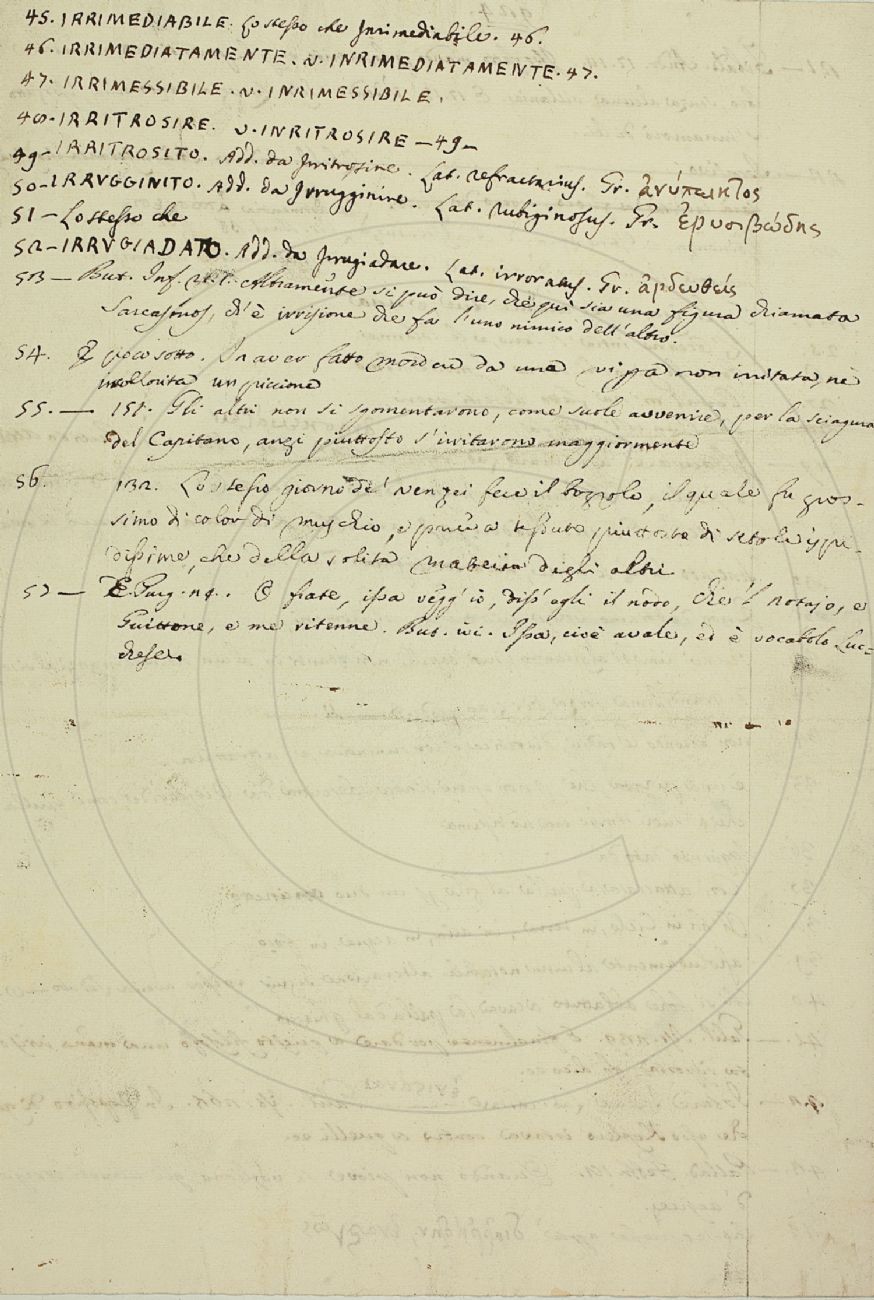 45. IRRIMEDIABILE. Lo stesso che Inrimediabile. 46.
46. IRRIMEDIATAMENTE. v. INRIMEDIATAMENTE. 47.
47. IRRIMESSIBILE. v. INRIMESSIBILE.
48. IRRITROSIRE. v. INRITROSIRE — 49 —
49 - IRRITROSITO. Add. da Irritrosire. Lat. refractarius. Gr. ἀνύπεικτος
50 - IRRVGGINITO. Add. da Irrugginire. Lat. rubiginosus. Gr. ἐρυσιβώδης
51 — Lo stesso che
52 - IRRVGIADATO. Add. da Irrugiadare. Lat. irroratus. Gr. ἀρδευθείς
53 — But. Inf. Altramente si può dire, che quì sia una figura chiamata
Sarcasmos, ch'è irrisione che fa l'uno nimico dell'altro.
54. E poco sotto. In aver fatto mordere da una vipera non irritata, nè
insollorita un piccione
55. — 151. Gli altri non si sgomentarono, come suole avvenire, per la sciagura
del Capitano, anzi piuttosto s'irritarono maggiormente
56. 132. Lo stesso giorno de' venzei fece il bozzolo, il quale fu gros-
simo di color di muschio, e pareva tessuto piuttosto di setole ispi-
dissime, che della solita materia degli altri
57 — Purg. 24. O frate, issa vegg' io, diss' egli il nodo, che 'l notajo, e
Guittone, e me ritenne. But. ivi. Issa, cioè avale, ed è vocabolo Luc-
chese.